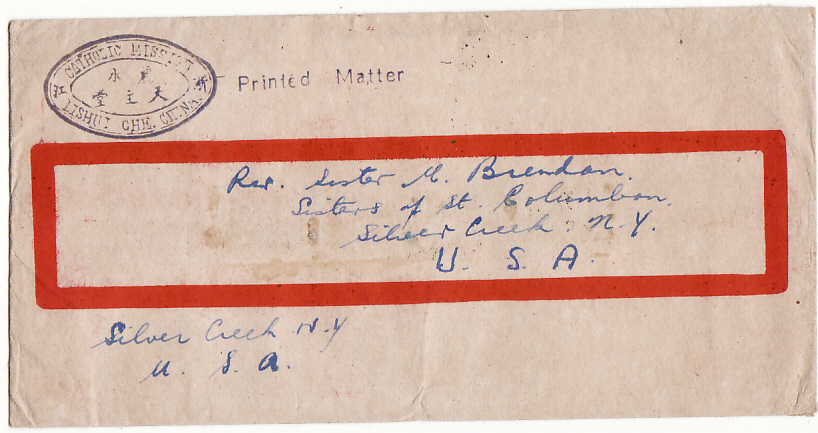 CATHOLIC MISSION
浙江
麗水
天主堂
LISHUI CHE. CHINA
Printed Matter
Rev. Sister M. Brendan.
Sisters of St. Columban,
Silver Creek N.Y.
U. S. A.
Silver Creek N.Y
U. S. A.